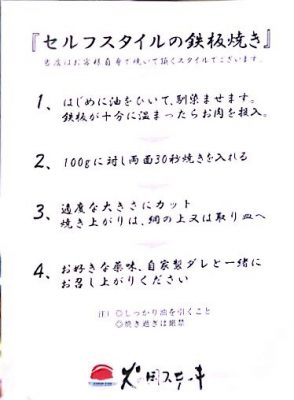 『セルフスタイルの鉄板焼き』
当店はお客様自身で焼いて頂くスタイルでございます。
1、はじめに油をひいて、馴染ませます。
鉄板が十分に温まったらお肉を投入。
2、100gに対し両面30秒焼きを入れる
3、適度な大きさにカット
焼き上がりは、網の上又は取り皿へ
4、お好きな薬味、自家製ダレと一緒に
お召し上がりください
注）◎しっかり油を引くこと
◎焼き過ぎは厳禁
犬田ステーキ